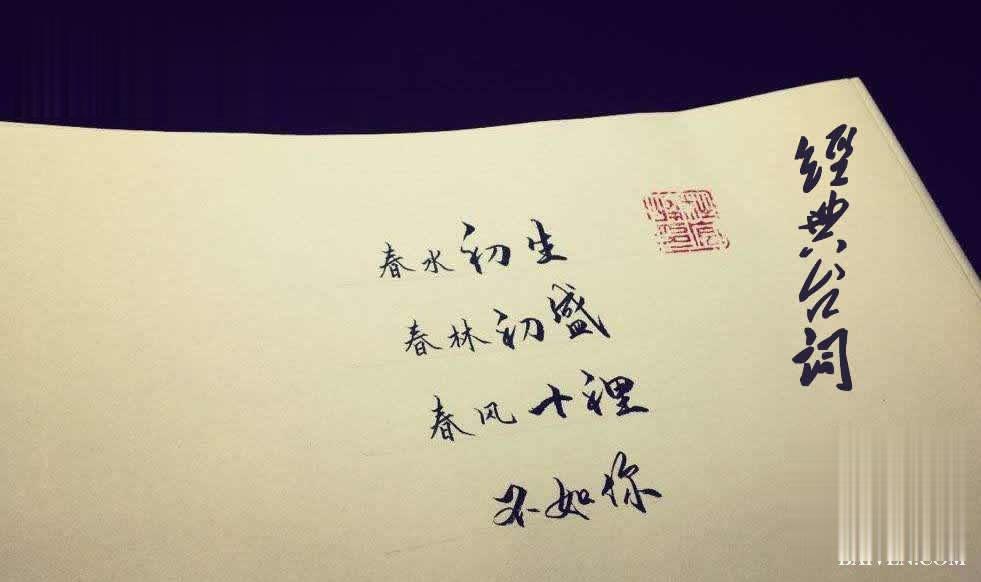 春水初生
春林初盛
春风十裡
不如你
經典台词